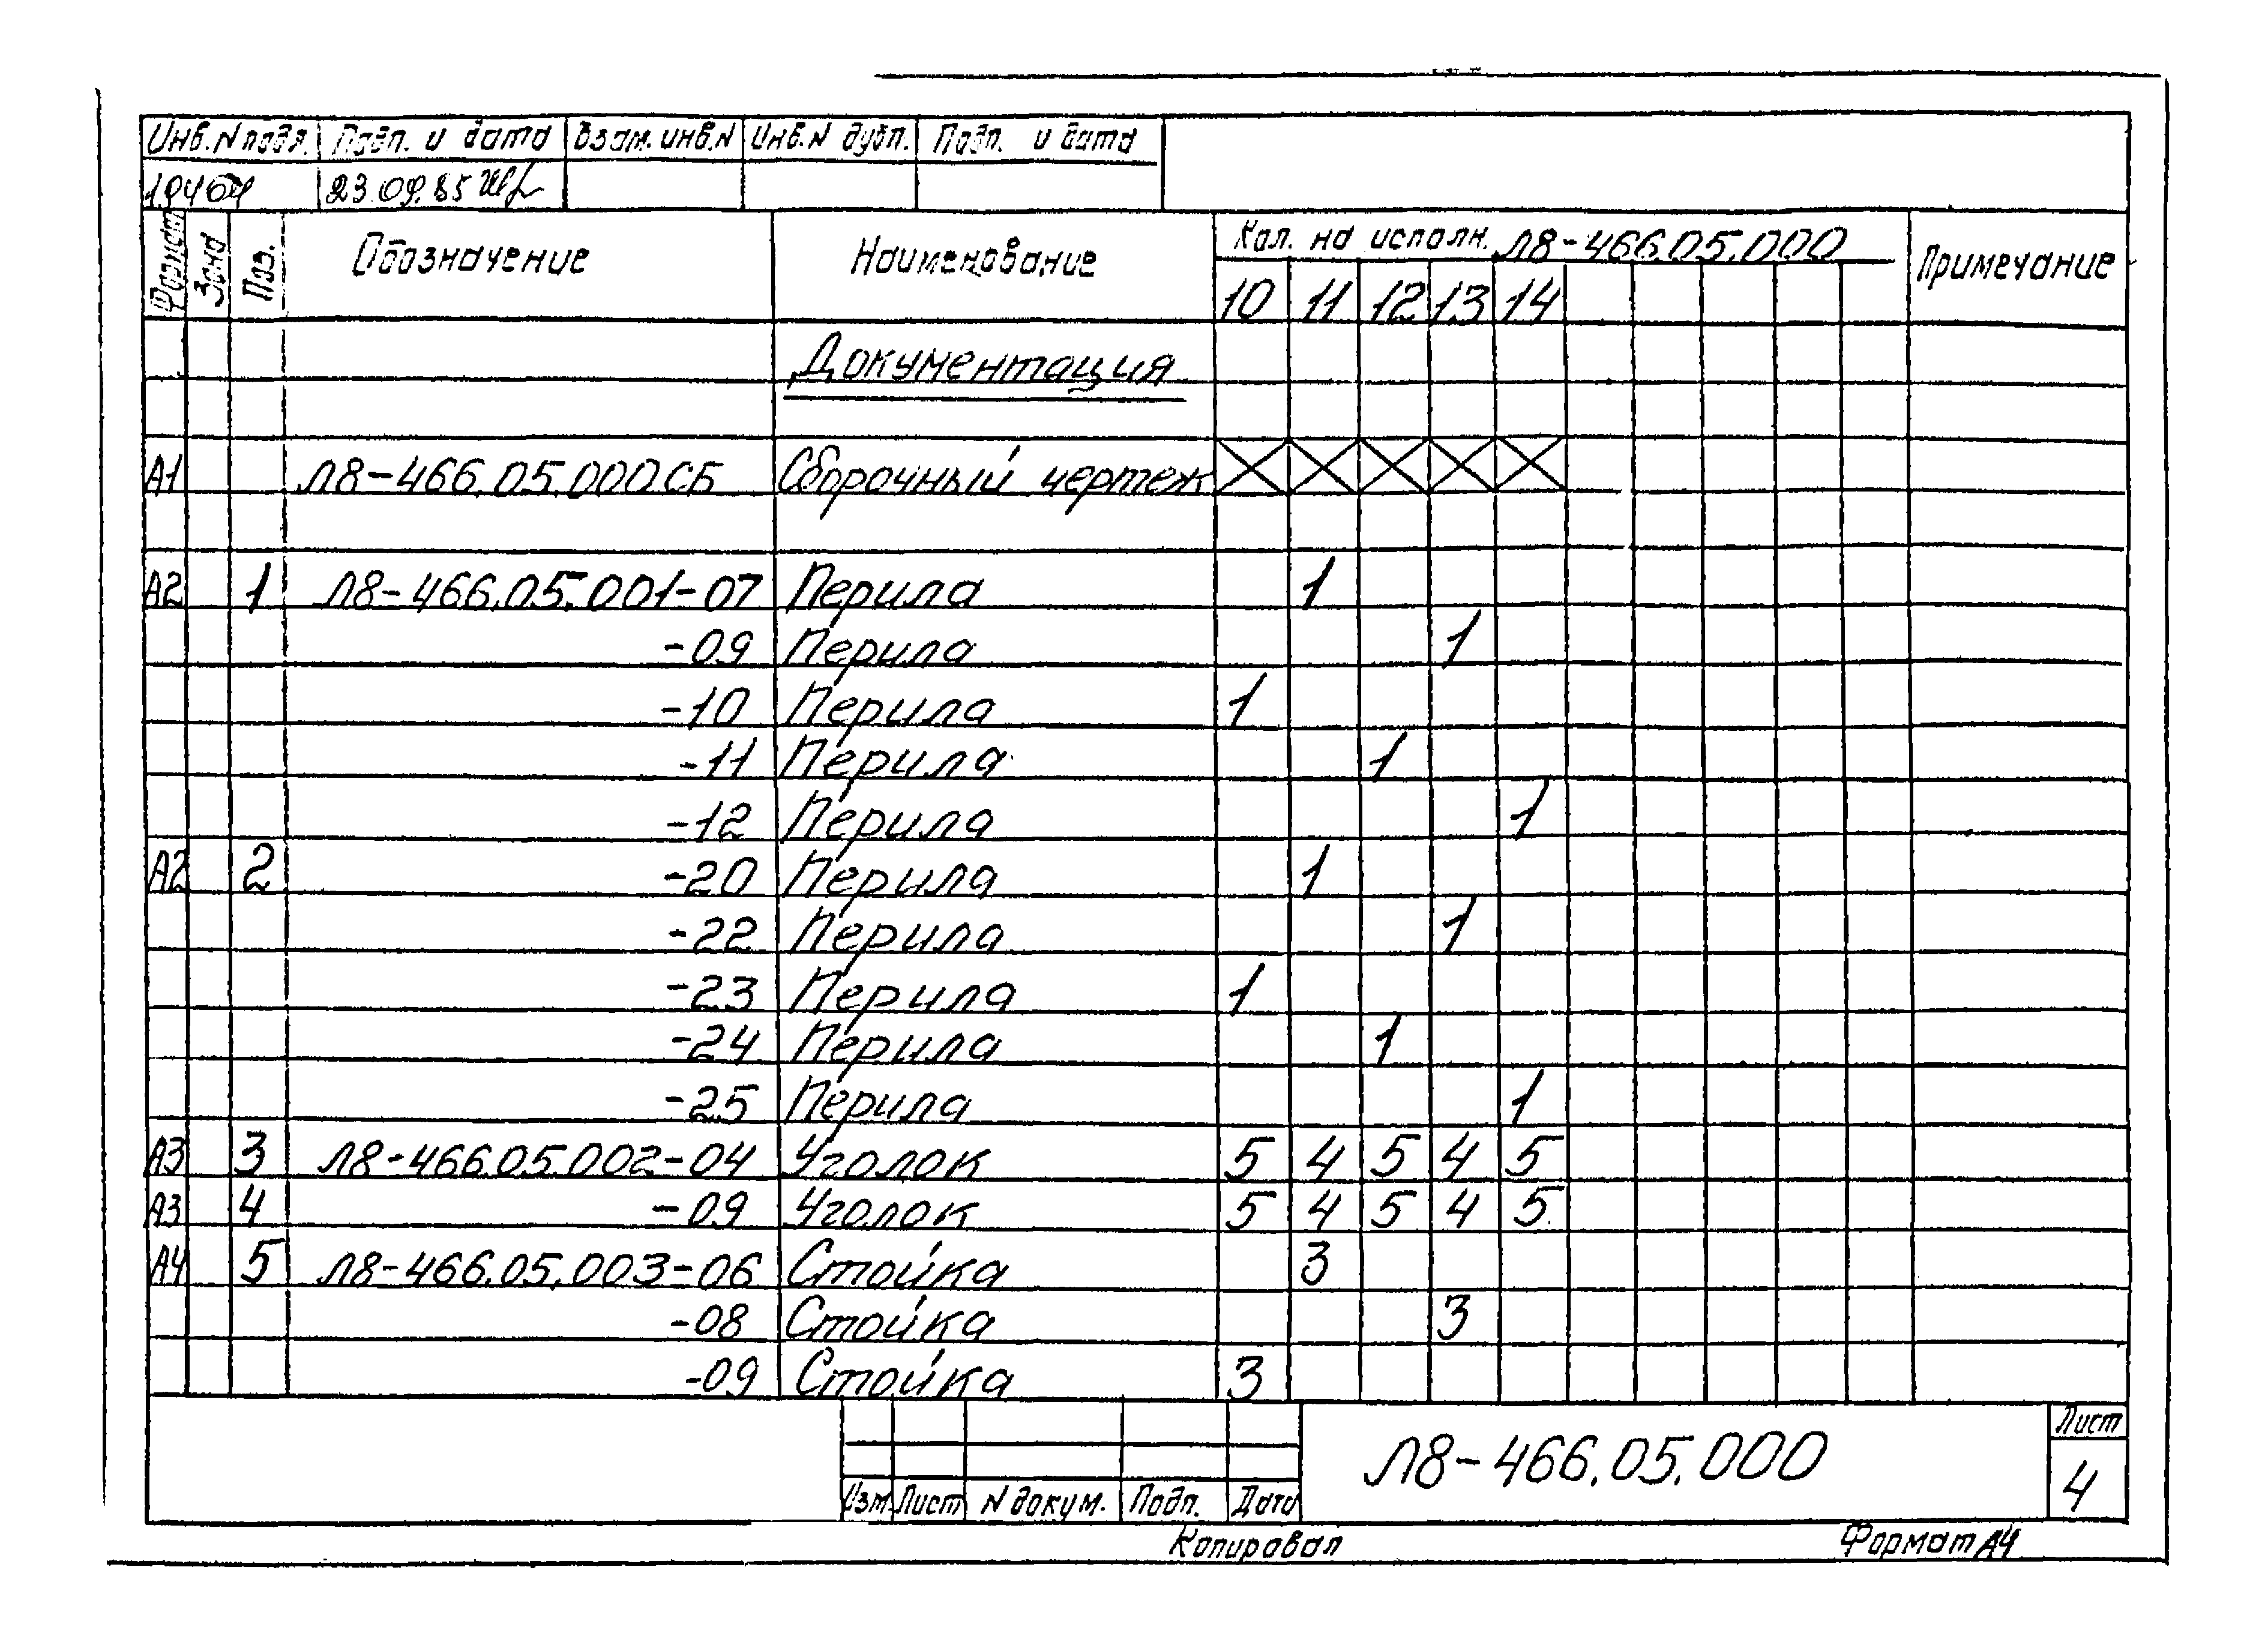 Инв.N подл. Подп. и дата Взам. инв.N Инв.N дубл. Подп. и дата
19464 23.09.85
Формат Зона Поз. Обозначение Наименование Кол. на исполн. Л8-466.05.000 Примечание
10 11 12 13 14
Документация
А1 Л8-466.05.000СБ Сборочный чертеж
А2 1 Л8-466.05.001-07 Перила 1
-09 Перила 1
-10 Перила 1
-11 Перила 1
-12 Перила 1
А2 2 -20 Перила 1
-22 Перила 1
-23 Перила 1
-24 Перила 1
-25 Перила 1
А3 3 Л8-466.05.002-04 Уголок 5 4 5 4 5
А3 4 -09 Уголок 5 4 5 4 5
А4 5 Л8-466.05.003-06 Стойка 3
-08 Стойка 3
-09 Стойка 3
Изм. Лист N докум. Подп. Дата Л8-466.05.000 Лист 4
Копировал Формат А4